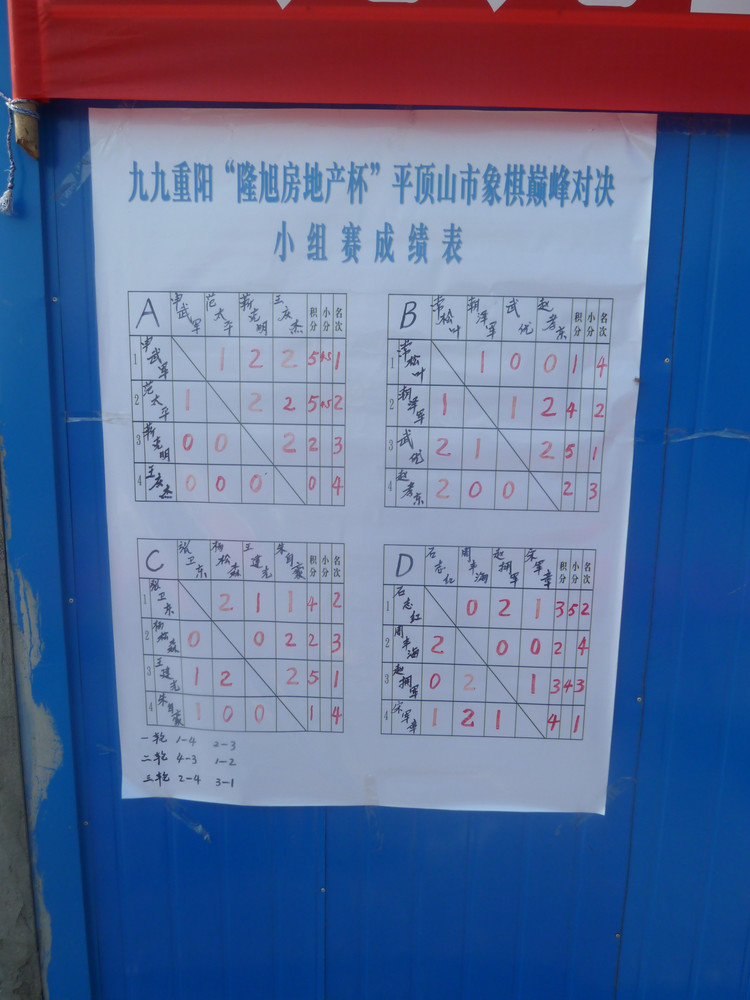 九九重阳“隆旭房地产杯”平顶山市象棋巅峰对决
小组赛成绩表
A 申武军 范太平 靳克明 王庆杰 积分 小分 名次
1 申武军 1 2 2 5 1
2 范太平 1 2 2 5 2
3 靳克明 0 0 2 2 3
4 王庆杰 0 0 0 0 4
B 松叶 朝泽军 武优 赵孝东 积分 小分 名次
1 松叶 1 0 0 1 4
2 朝泽军 1 1 2 4 2
3 武优 2 1 2 5 1
4 赵孝东 2 0 0 2 3
C 张卫东 杨松淼 王建光 朱自豪 积分 小分 名次
1 张卫东 2 1 1 4 2
2 杨松淼 0 0 2 2 3
3 王建光 1 2 2 5 1
4 朱自豪 1 0 0 1 4
D 石志红 周丰海 赵拥军 宋军幸 积分 小分 名次
1 石志红 0 2 1 3 5 2
2 周丰海 2 0 0 2 4
3 赵拥军 0 2 1 3 4 3
4 宋军幸 1 2 1 4 1
一轮 1-4 2-3
二轮 4-3 1-2
三轮 2-4 3-1